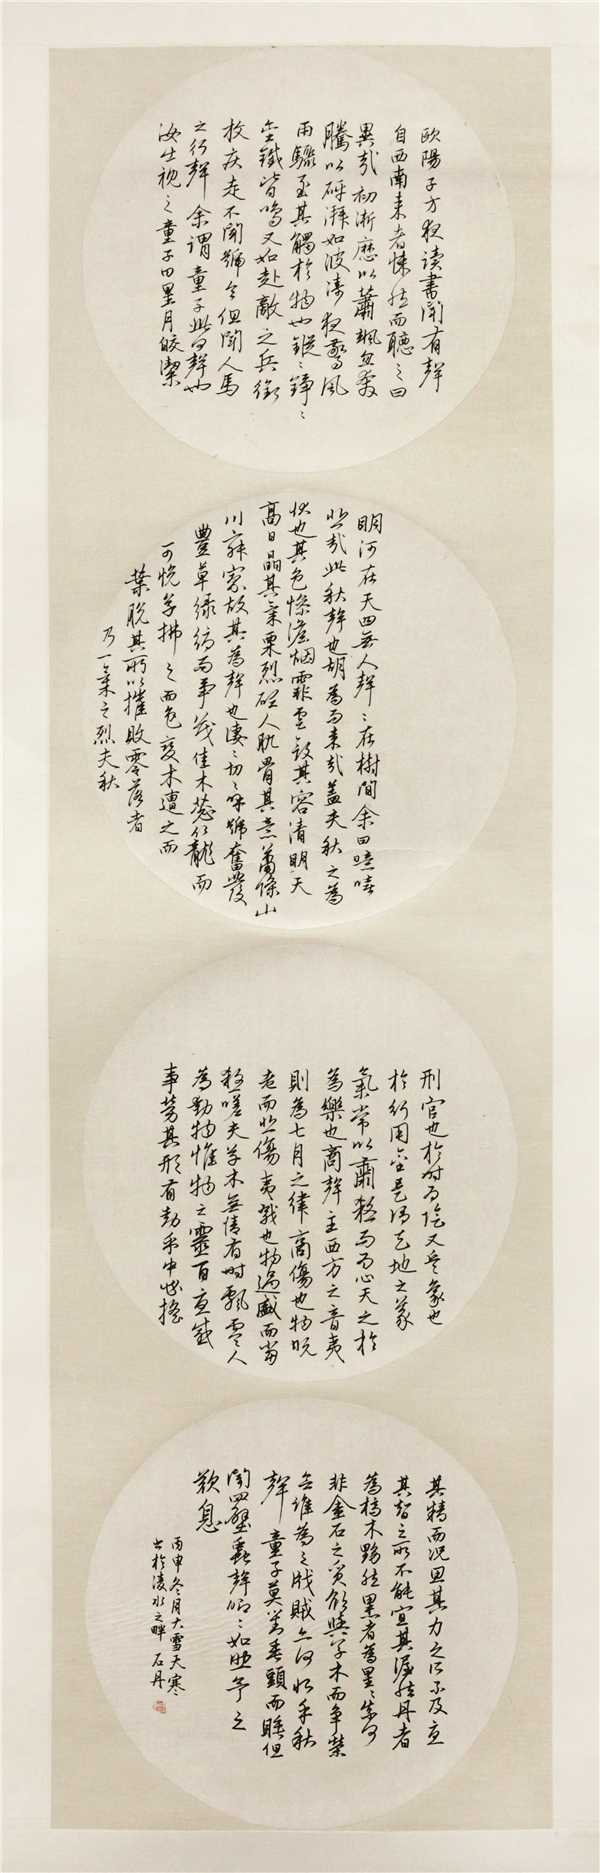 欧陽子方夜读書闻有聲
自西南来者悚然而聽之曰
異哉初淅瀝以蕭颯忽奔
騰以砰湃如波涛夜驚風
雨驟至其觸於物也鏦〻錚〻
金鐵皆鳴又如赴敵之兵銜
枚疾走不闻號令但闻人馬
之行聲余谓童子此何聲也
汝出視之童子曰星月皎潔
明河在天四無人聲〻在樹間余曰噫嘻
悲哉此秋聲也胡為而来哉盖夫秋之為
状也其色惨澹烟霏雲歛其容清明天
高日晶其氣栗烈砭人肌骨其意蕭條山
川寂寥故其為聲也凄〻切〻呼號奮發
豐草绿缛而争茂佳木葱蘢而
可悦草拂之而色变木遭之而
葉脱其所以摧敗零落者
乃一氣之烈夫秋
刑官也於时为陰又兵象也
於行用金是谓天地之义
氣常以肅殺而为心天之於
為樂也商聲主西方之音夷
則為七月之律商傷也物既
老而悲傷夷戮也物過盛而當
殺嗟夫草木無情有时飄零人
為動物惟物之靈百憂感
事勞其形有动乎中必摇
其精而况思其力之所不及憂
其智之所不能宜其渥然丹者
為槁木黟然黑者為星〻奈何
非金石之质欲與草木而争榮
念誰為之戕賊亦何恨乎秋
聲童子莫对垂頭而睡但
闻四壁蟲聲唧〻如助予之
歎息
丙申冬月大雪天寒
书於凌水之畔石丹